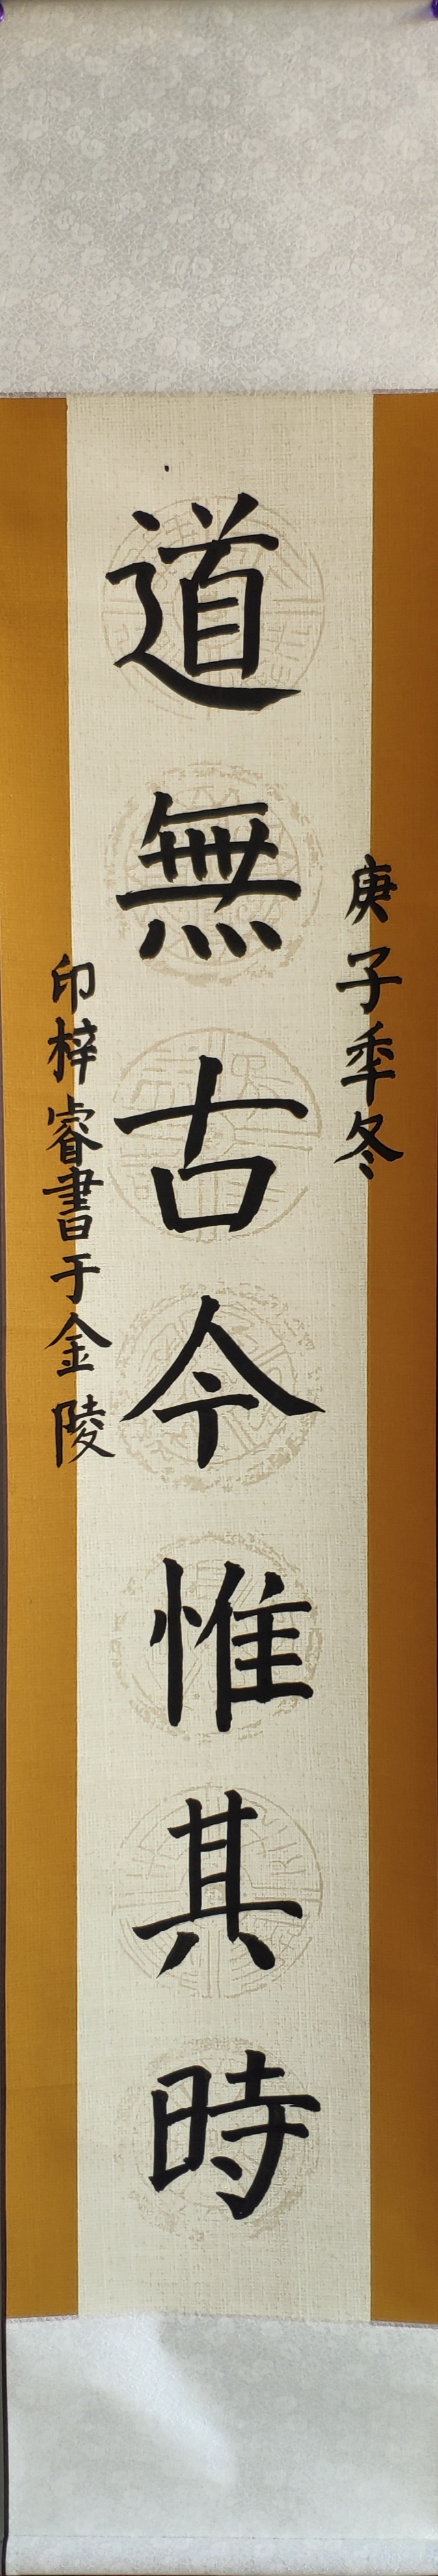 庚子季冬
道無古今惟其時
印梓睿書于金陵